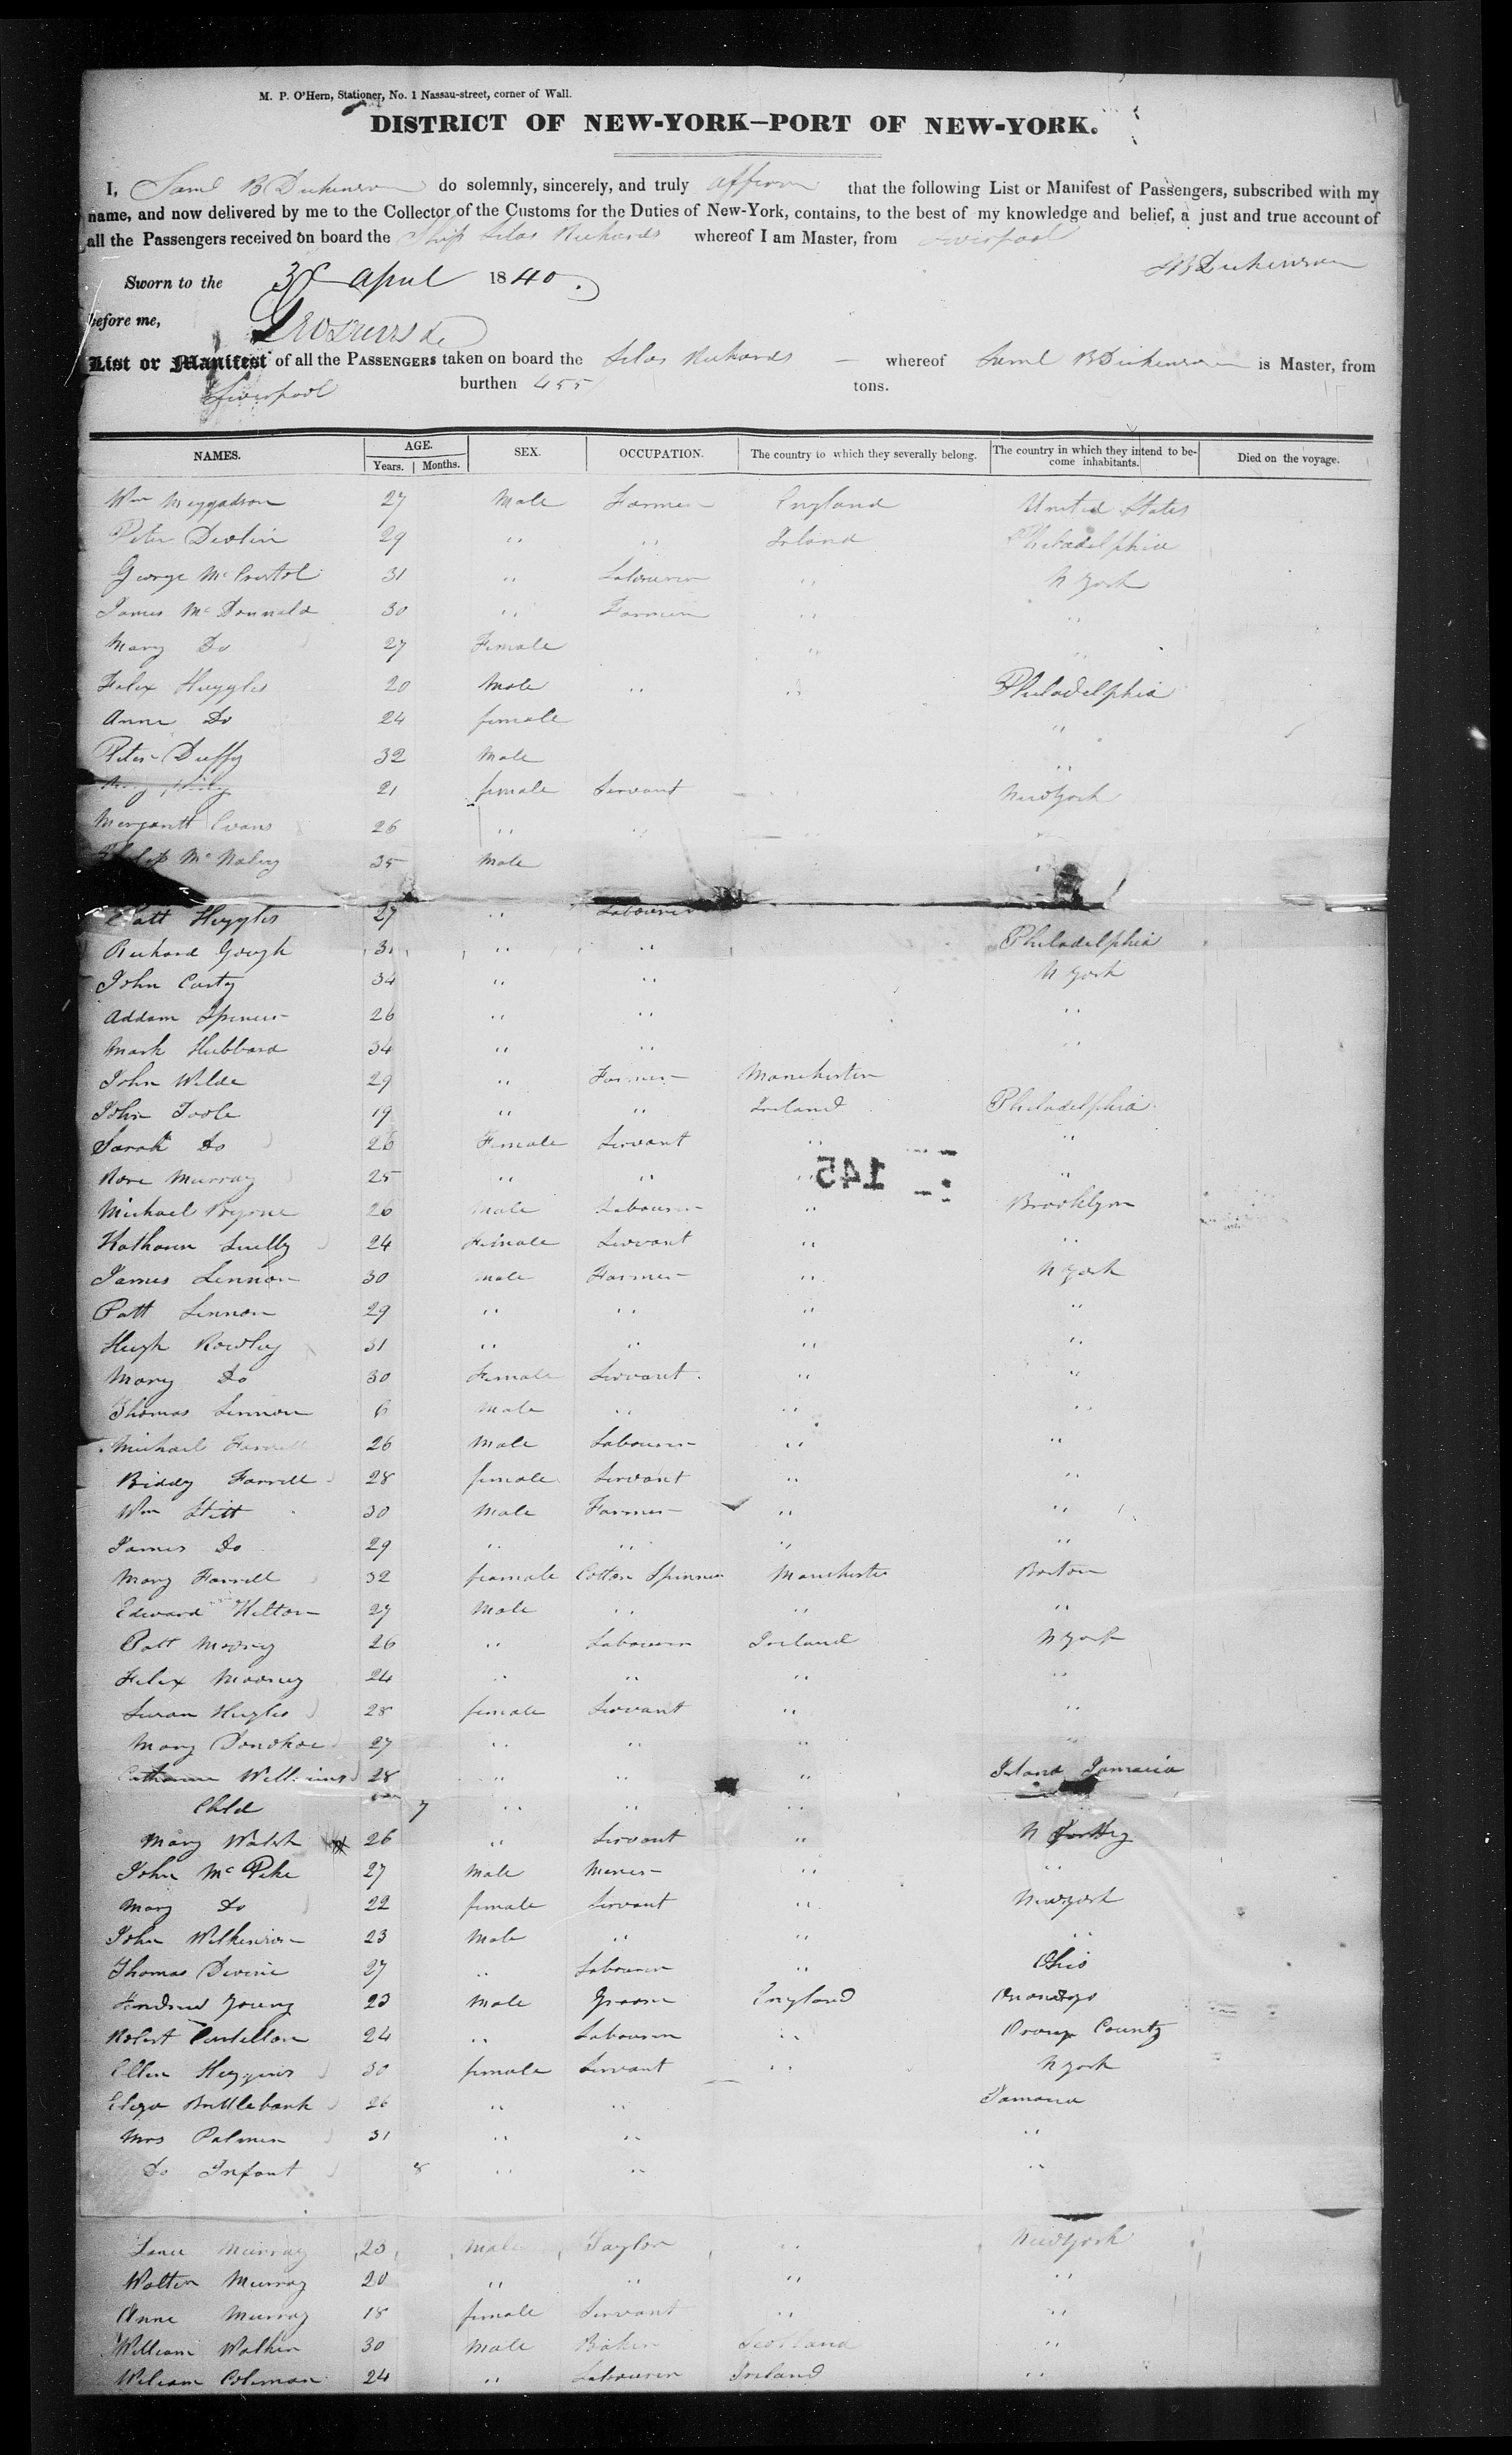 M. P. O'Hern, Stationer, No. 1 Nassau-street, corner of Wall.
DISTRICT OF NEW-YORK—PORT OF NEW-YORK.
I, Saml B Dickinson do solemnly, sincerely, and truly affirm that the following List or Manifest of Passengers, subscribed with my
name, and now delivered by me to the Collector of the Customs for the Duties of New-York, contains, to the best of my knowledge and belief, a just and true account of
all the Passengers received on board the Ship Silas Richards whereof I am Master, from Liverpool
SB Dickinson
Sworn to the 30 April 1840.
before me,
List or Manifest of all the PASSENGERS taken on board the Silas Richards — whereof Saml B Dickinson is Master, from
Liverpool burthen 455 tons.
NAMES. AGE. Years. Months. SEX. OCCUPATION. The country to which they severally belong. The country in which they intend to become inhabitants. Died on the voyage.
Wm 27 Male Farmer England United States
Peter Devlin 29 " " Irland Philadelphia
George 31 " Labourer " N York
James McDonnald 30 " Farmer " "
Mary Do 27 Female " "
Felix Huggles 20 Male " " Philadelphia
Anne Do 24 female "
Peter Duffy 32 Male "
Mary 21 female Servant New York
Margarett Evans 26 " "
Philip McNaley 35 Male
Patt Huggles 27 " Labourer
Richard Gough 31 " " Philadelphia
John Carty 34 " " N York
Addam Spencer 26 " " "
Mark Hubbard 34 " " "
John Wilde 29 " Farmer Manchester
John Toole 19 " " Ireland Philadelphia
Sarah Do 26 Female Servant " "
Rose Murray 25 " " " "
145
Michael Byrne 26 Male Labourer " Brooklyn
24 Female Servant " "
James Lennon 30 Male Farmer " N York
Patt Lennon 29 " " " "
Hugh Rowley 31 " " " "
Mary Do 30 Female Servant " "
Thomas Lennon 6 Male " " "
Michael Farrell 26 Male Labourer " "
Biddy Farrell 28 female Servant " "
Wm Stitt 30 Male Farmer " "
James Do 29 " " " "
Mary Farrell 32 feamale Cotton Spinner Manchester Boston
Edward Hilton 27 Male " " "
Patt Mooney 26 " Labourer Ireland N York
Felix Mooney 24 " " " "
Susan Hughes 28 female Servant " "
Mary Donohoe 27 " " " "
Catharine Williams 28 " " " Island Jamaica
Child 7 " " "
Mary Walsh 26 " Servant " N
John McPike 27 Male Miner " "
Mary Do 22 female Servant " New york
John Wilkinson 23 Male " " "
Thomas Devine 27 " Labourer " Ohio
Andrew Young 23 Male Groom England
Robert 24 " Labourer " Orange County
Ellen Higgins 30 female Servant " N York
Eliza Brittlebank 26 " " Jamaica
Mrs Palmer 31 " " "
Do Infant 8 " " "
Murray 23 Male Taylor " New York
Walter Murray 20 " " " "
Anne Murray 18 female Servant " "
William Walker 30 Male Baker Scotland "
William Coleman 24 " Labourer Ireland "